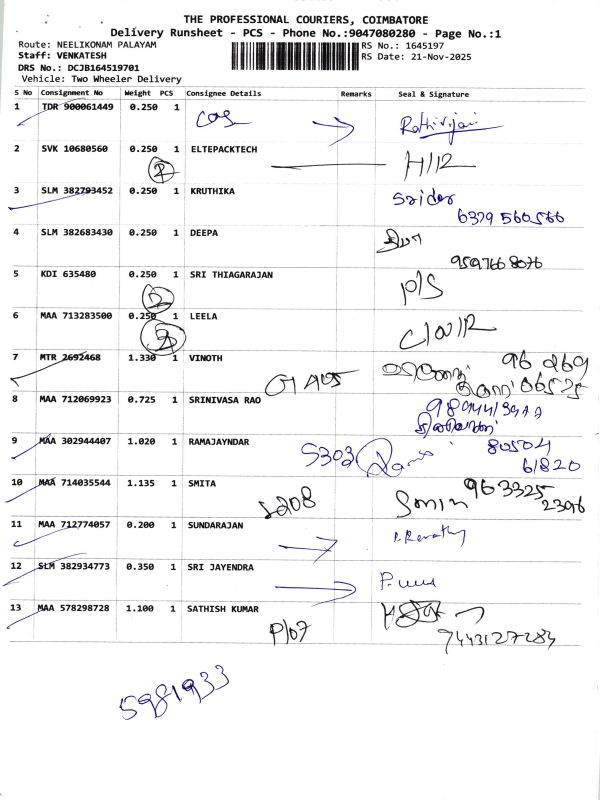 THE PROFESSIONAL COURIERS, COIMBATORE
Delivery Runsheet - PCS - Phone No.:9047080280 - Page No.:1
Route: NEELIKONAM PALAYAM
RS No.: 1645197
Staff: VENKATESH
RS Date: 21-Nov-2025
DRS No.: DCJB164519701
Vehicle: Two Wheeler Delivery
S No Consignment No Weight PCS Consignee Details Remarks Seal & Signature
1 TDR 900061449 0.250 1
2 SVK 10680560 0.250 1 ELTEPACKTECH
2
3 SLM 382793452 0.250 1 KRUTHIKA Srider
6379 560566
4 SLM 382683430 0.250 1 DEEPA தீபா
9597668076
5 KDI 635480 0.250 1 SRI THIAGARAJAN P/S
6 MAA 713283500 0.250 1 LEELA
7 MTR 2692468 1.330 1 VINOTH 96 269
06575
8 MAA 712069923 0.725 1 SRINIVASA RAO
9 MAA 302944407 1.020 1 RAMAJAYNDAR S303 80504
61820
10 MAA 714035544 1.135 1 SMITA 963325
S208 23096
11 MAA 712774057 0.200 1 SUNDARAJAN
12 SLM 382934773 0.350 1 SRI JAYENDRA
13 MAA 578298728 1.100 1 SATHISH KUMAR
P107 7443127284
5981933